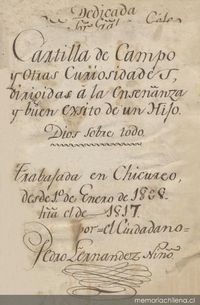 Dedicada
Cartilla de Campo
y Otras Curiosidades,
dirigidas à la Enseñanza
y buen exsito de un Hijo.
Dios sobre todo
Trabajada en Chicureo,
desde 1º de Enero de 1808.
hta el de 1817.
por el Ciudadano
Pedro Fernandez Niño
www.memoriachilena.cl